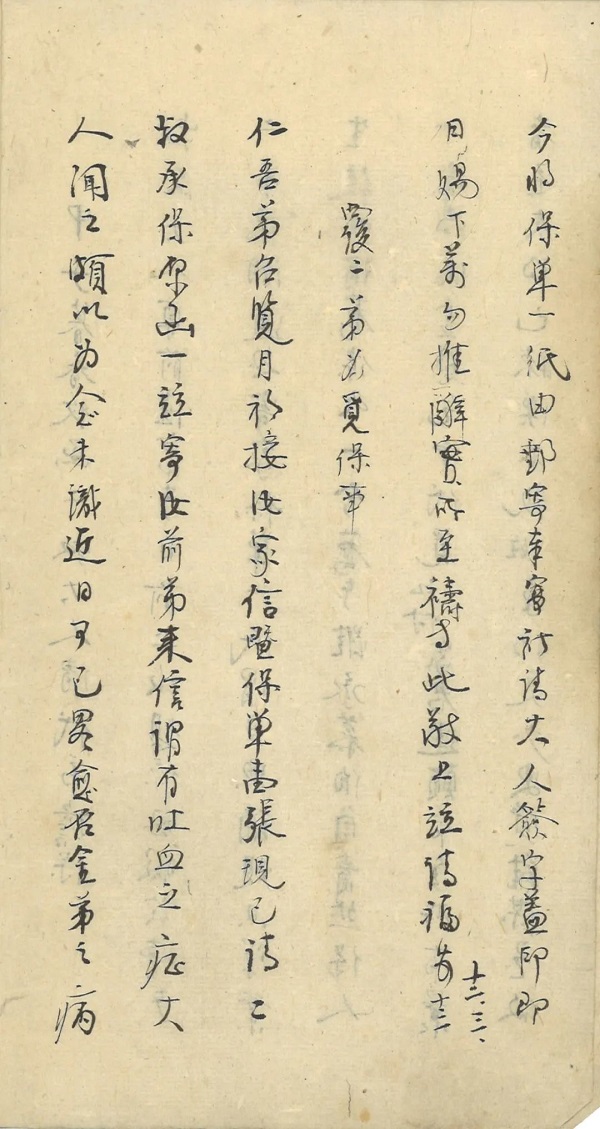 今將保單一紙由郵寄奉實祈請大人簽字蓋印即
日賜下萬勿推辭實所至禱專此敬上並請福安十二
十二、三、
覆二弟為覓保事
仁吾弟台覽月初接汝家信暨保單兩張現已請二
叔承保原函一並寄汝前弟來信謂有吐血之症大
人聞之頗以為念未識近日可已畧愈否金弟之病